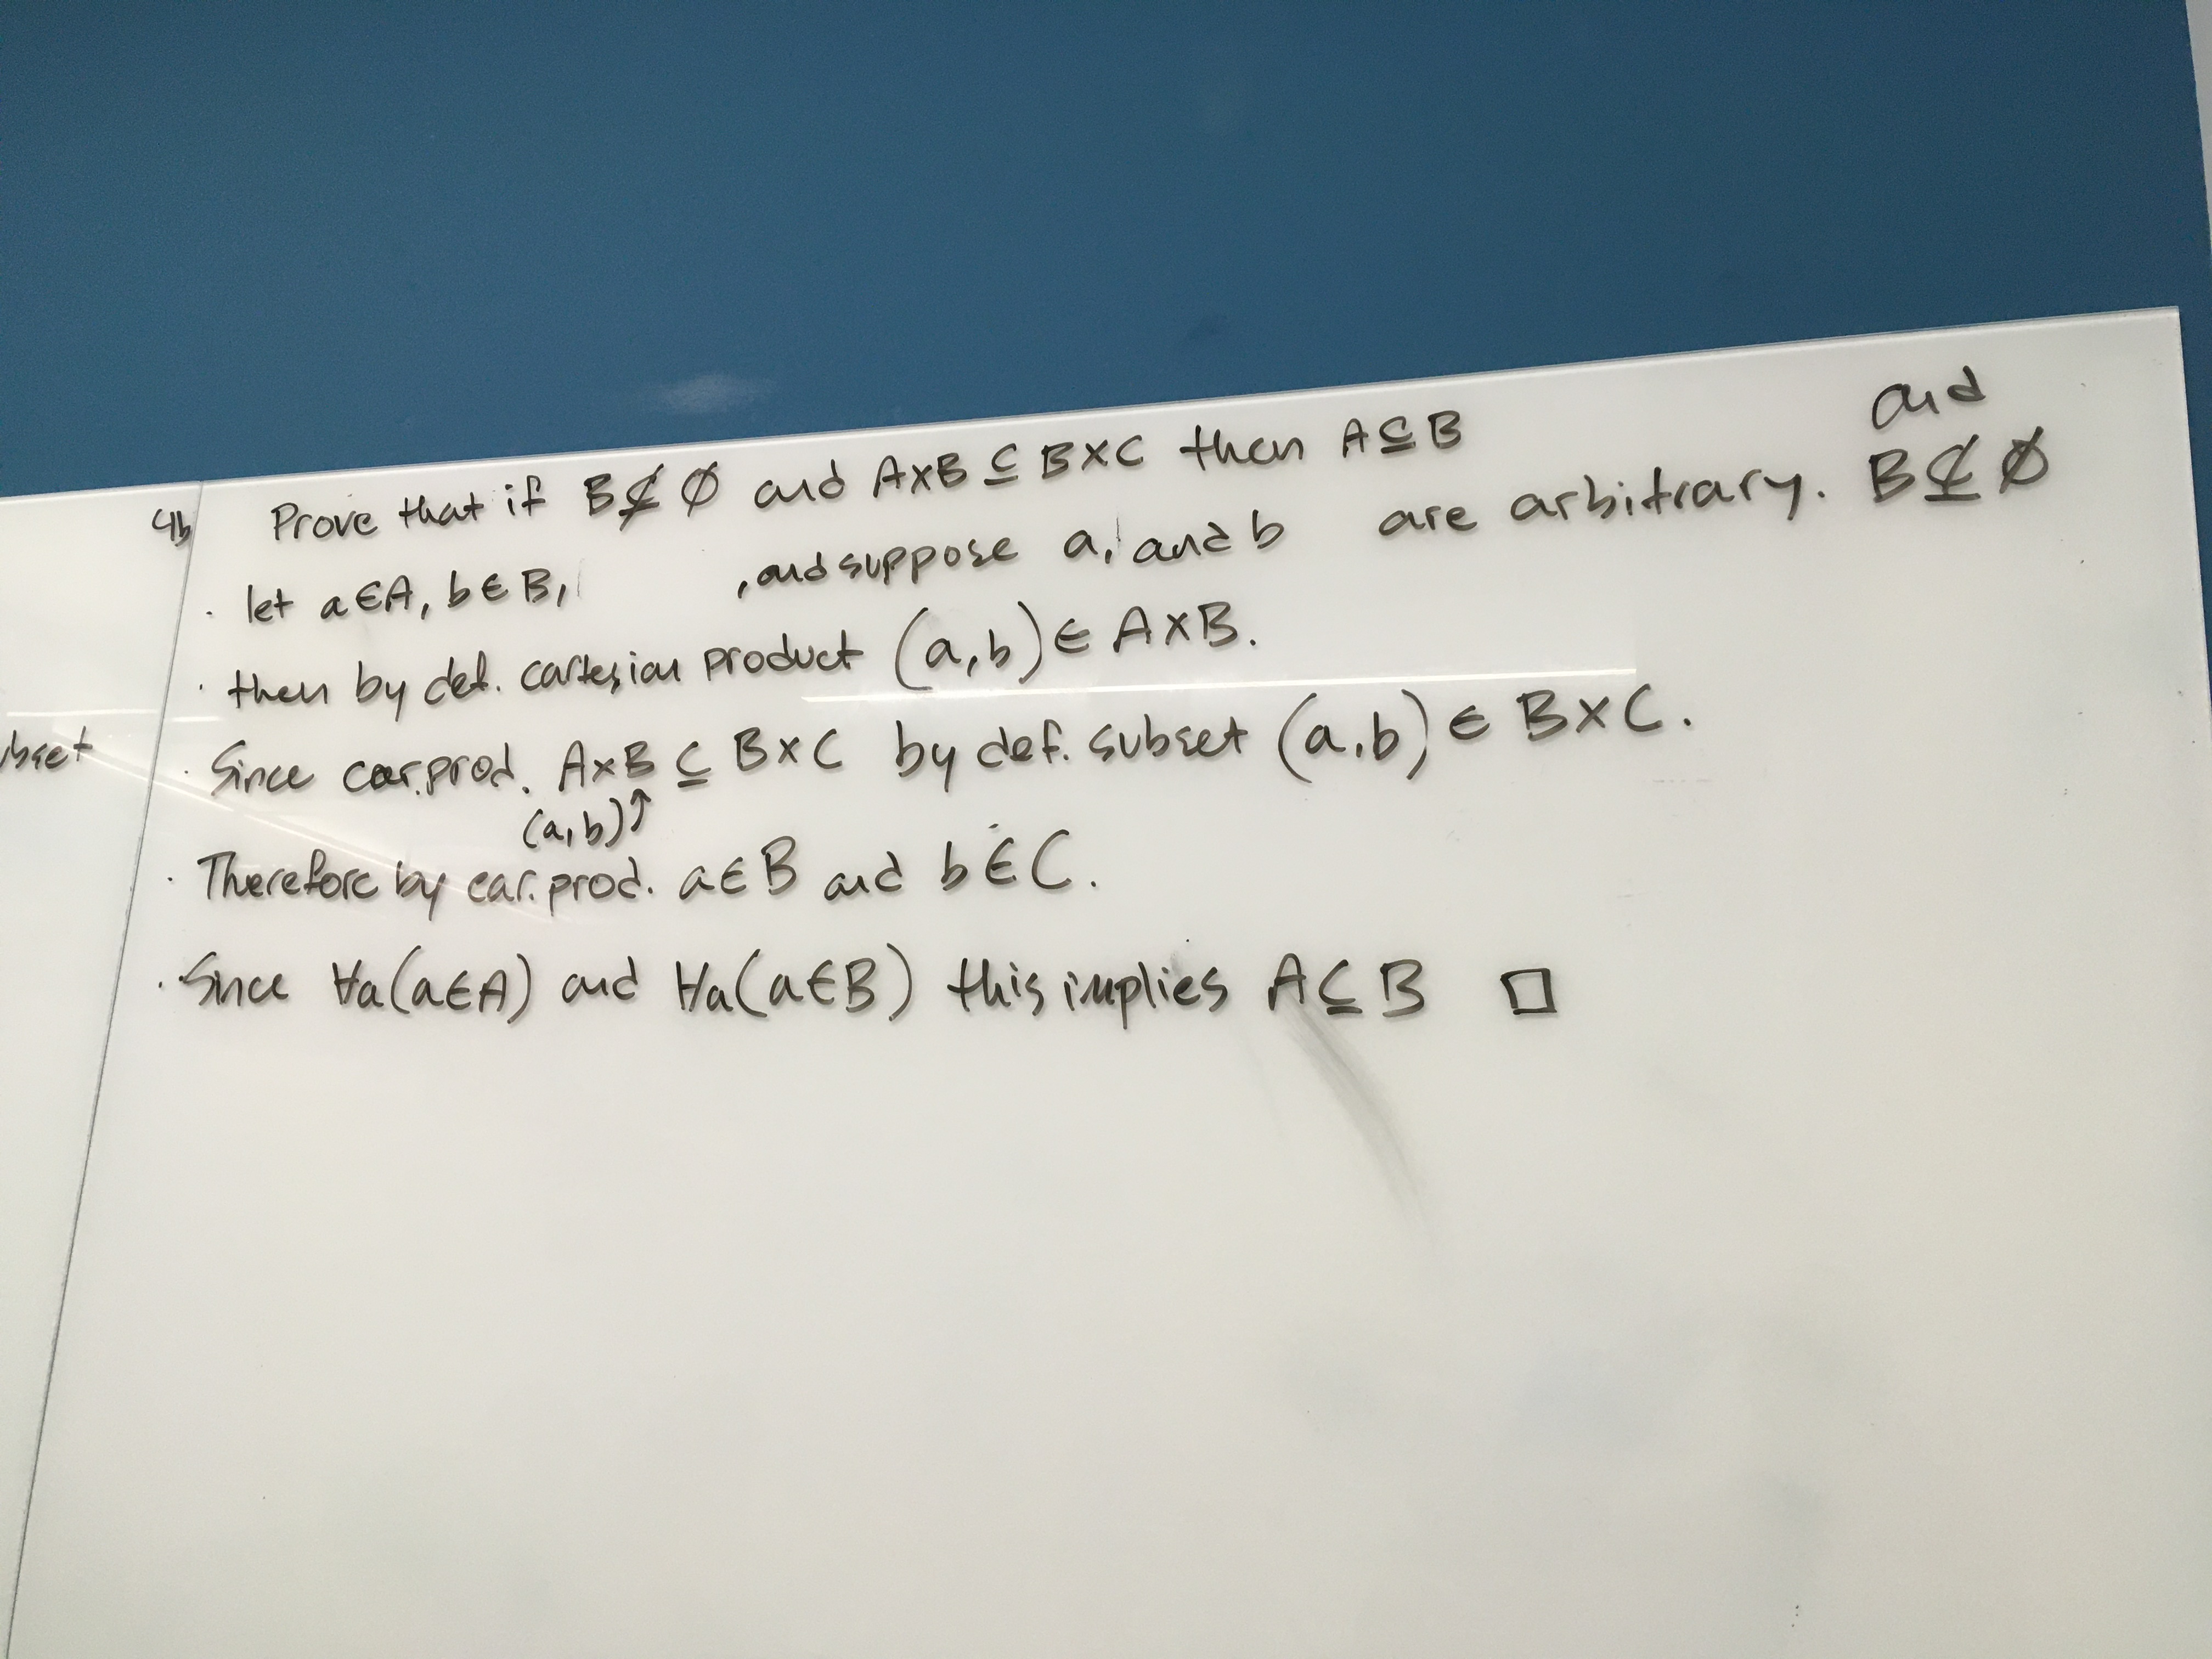 4b Prove that if B ⊈ Ø and A×B ⊆ B×C then A ⊆ B
and
· let a∈A, b∈B, , and suppose a, and b are arbitrary. B ⊈ Ø
· then by def. cartesian product (a,b) ∈ A×B.
· Since car.prod. A×B ⊆ B×C by def. subset (a,b) ∈ B×C.
(a,b)↑
· Therefore by car.prod. a∈B and b∈C.
· Since ∀a(a∈A) and ∀a(a∈B) this implies A⊆B □